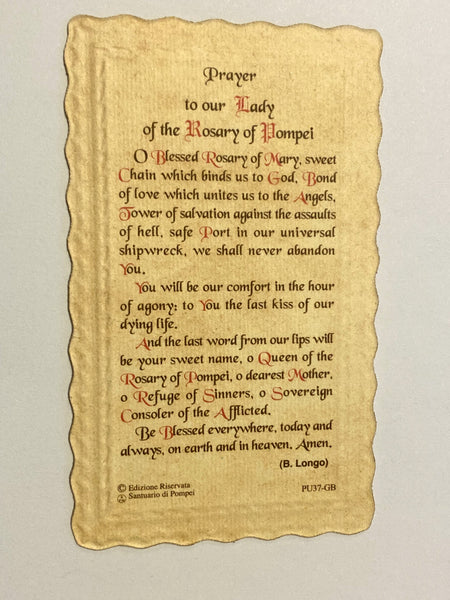 Prayer
to our Lady
of the Rosary of Pompei
O Blessed Rosary of Mary, sweet
Chain which binds us to God, Bond
of love which unites us to the Angels,
Tower of salvation against the assaults
of hell, safe Port in our universal
shipwreck, we shall never abandon
You.
You will be our comfort in the hour
of agony: to You the last kiss of our
dying life.
And the last word from our lips will
be your sweet name, o Queen of the
Rosary of Pompei, o dearest Mother,
o Refuge of Sinners, o Sovereign
Consoler of the Afflicted.
Be Blessed everywhere, today and
always, on earth and in heaven. Amen.
(B. Longo)
© Edizione Riservata
Santuario di Pompei
PU37-GB